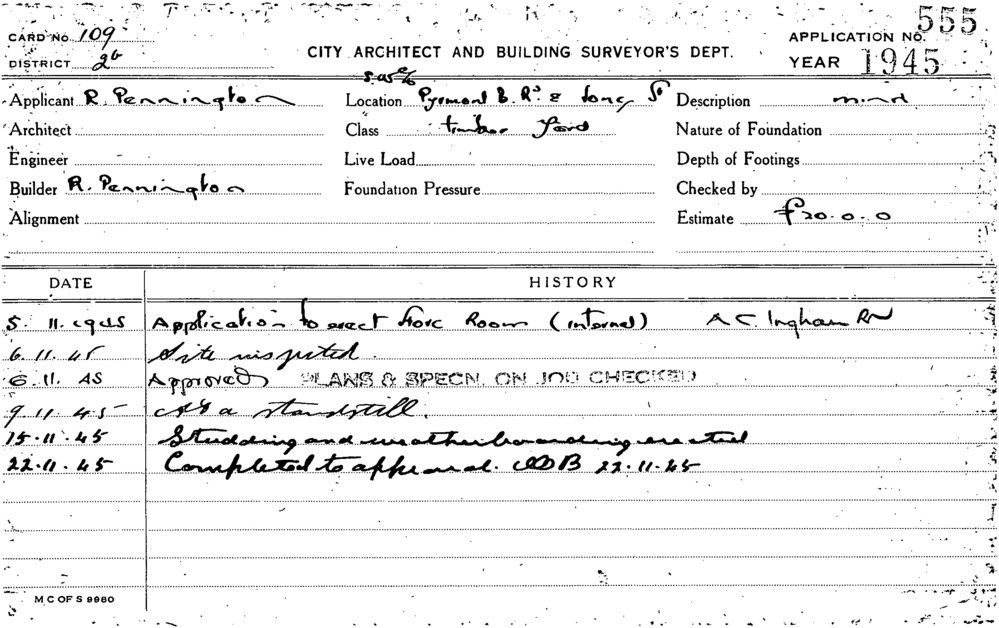 CARD No. 109
DISTRICT 2b
CITY ARCHITECT AND BUILDING SURVEYOR'S DEPT.
APPLICATION No. 555
YEAR 1945
Applicant R. Pennington
Architect
Engineer
Builder R. Pennington
Alignment
Location Pyrmont B. Rd & Jones St
Class timber yard
Live Load
Foundation Pressure
Description minor
Nature of Foundation
Depth of Footings
Checked by
Estimate £20.0.0
DATE HISTORY
5. 11. 1945 Application to erect Store Room (internal) A C. Ingham
6. 11. 45 Site inspected.
6. 11. 45 Approved PLANS & SPECN. ON JOB CHECKED
9. 11. 45 At a standstill.
15. 11. 45 Studding and weatherboarding erected
22. 11. 45 Completed to approval. 22. 11. 45
M C OF S 9960